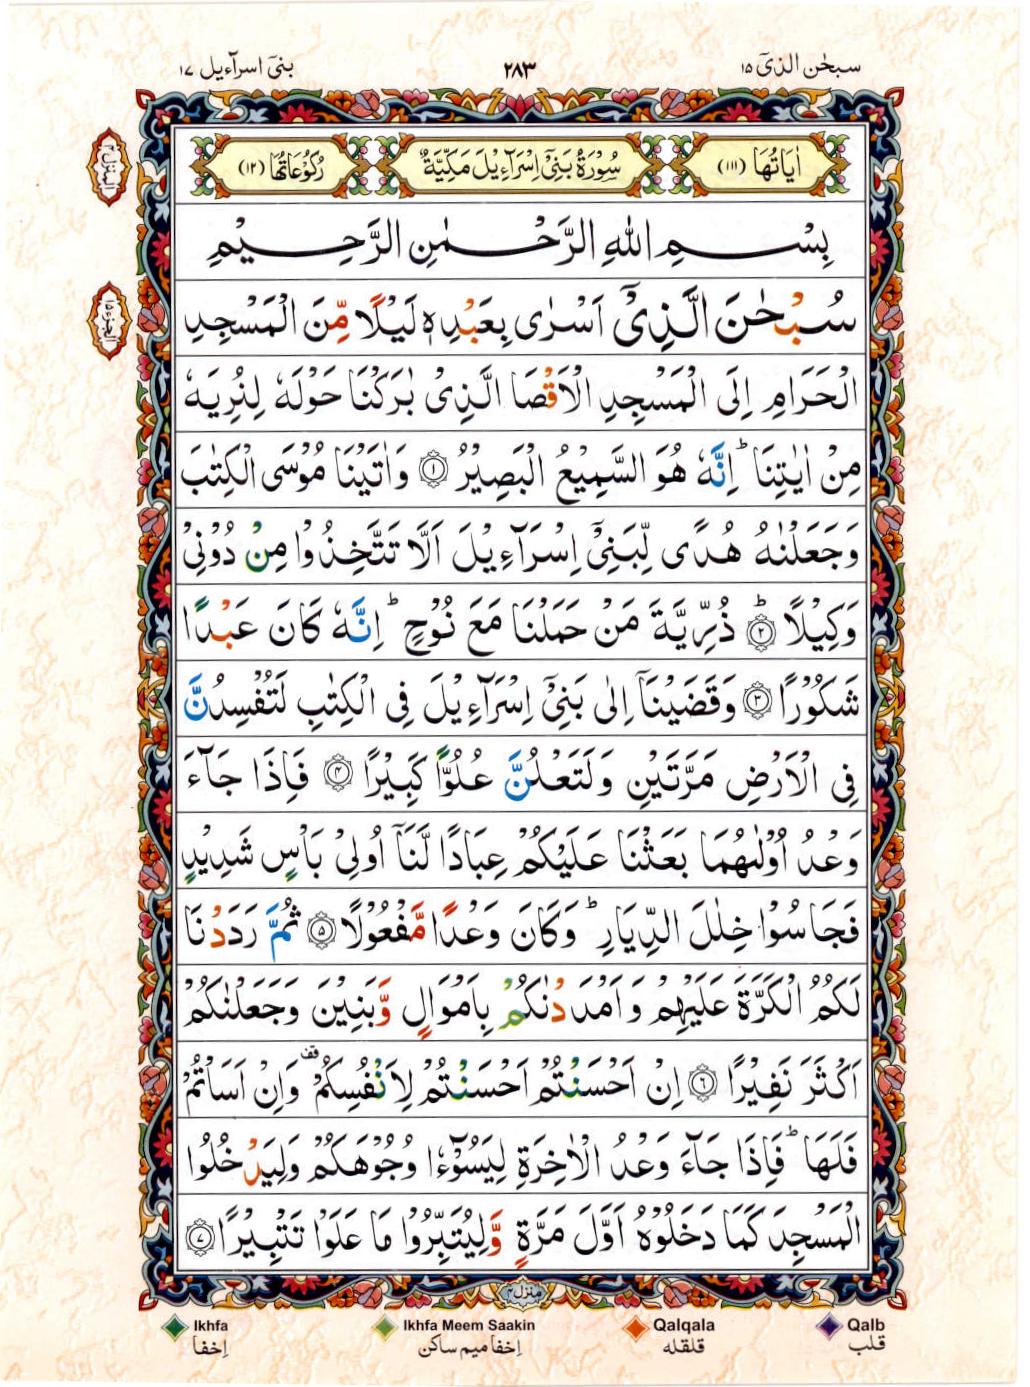 سبحٰن الذیٓ ١٥
٢٨٣
بنیٓ اسرآءیل ١٧
اٰیَاتُهَا (١١١)
سُوْرَةُ بَنِیْٓ اِسْرَآءِیْلَ مَكِّیَّةٌ
رُكُوْعَاتُهَا (١٢)
المنزل ٤
بِسْمِ اللهِ الرَّحْمٰنِ الرَّحِیْمِ
الجزء ١٥
سُبْحٰنَ الَّذِیْٓ اَسْرٰی بِعَبْدِهٖ لَیْلًا مِّنَ الْمَسْجِدِ
الْحَرَامِ اِلَی الْمَسْجِدِ الْاَقْصَا الَّذِیْ بٰرَكْنَا حَوْلَهٗ لِنُرِیَهٗ
مِنْ اٰیٰتِنَا ؕ اِنَّهٗ هُوَ السَّمِیْعُ الْبَصِیْرُ ۝١ وَاٰتَیْنَا مُوْسَی الْكِتٰبَ
وَجَعَلْنٰهُ هُدًی لِّبَنِیْٓ اِسْرَآءِیْلَ اَلَّا تَتَّخِذُوْا مِنْ دُوْنِیْ
وَكِیْلًا ؕ۝٢ ذُرِّیَّةَ مَنْ حَمَلْنَا مَعَ نُوْحٍ ؕ اِنَّهٗ كَانَ عَبْدًا
شَكُوْرًا ۝٣ وَقَضَیْنَاۤ اِلٰی بَنِیْٓ اِسْرَآءِیْلَ فِی الْكِتٰبِ لَتُفْسِدُنَّ
فِی الْاَرْضِ مَرَّتَیْنِ وَلَتَعْلُنَّ عُلُوًّا كَبِیْرًا ۝٤ فَاِذَا جَآءَ
وَعْدُ اُوْلٰىهُمَا بَعَثْنَا عَلَیْكُمْ عِبَادًا لَّنَاۤ اُولِیْ بَاْسٍ شَدِیْدٍ
فَجَاسُوْا خِلٰلَ الدِّیَارِ ؕ وَكَانَ وَعْدًا مَّفْعُوْلًا ۝٥ ثُمَّ رَدَدْنَا
لَكُمُ الْكَرَّةَ عَلَیْهِمْ وَاَمْدَدْنٰكُمْ بِاَمْوَالٍ وَّبَنِیْنَ وَجَعَلْنٰكُمْ
اَكْثَرَ نَفِیْرًا ۝٦ اِنْ اَحْسَنْتُمْ اَحْسَنْتُمْ لِاَنْفُسِكُمْ قف وَاِنْ اَسَاْتُمْ
فَلَهَا ؕ فَاِذَا جَآءَ وَعْدُ الْاٰخِرَةِ لِیَسُوْٓءٗا وُجُوْهَكُمْ وَلِیَدْخُلُوا
الْمَسْجِدَ كَمَا دَخَلُوْهُ اَوَّلَ مَرَّةٍ وَّلِیُتَبِّرُوْا مَا عَلَوْا تَتْبِیْرًا ۝٧
منزل ٤
Ikhfa
Ikhfa Meem Saakin
Qalqala
Qalb
اِخفا
اِخفا میم ساکن
قلقلہ
قلب